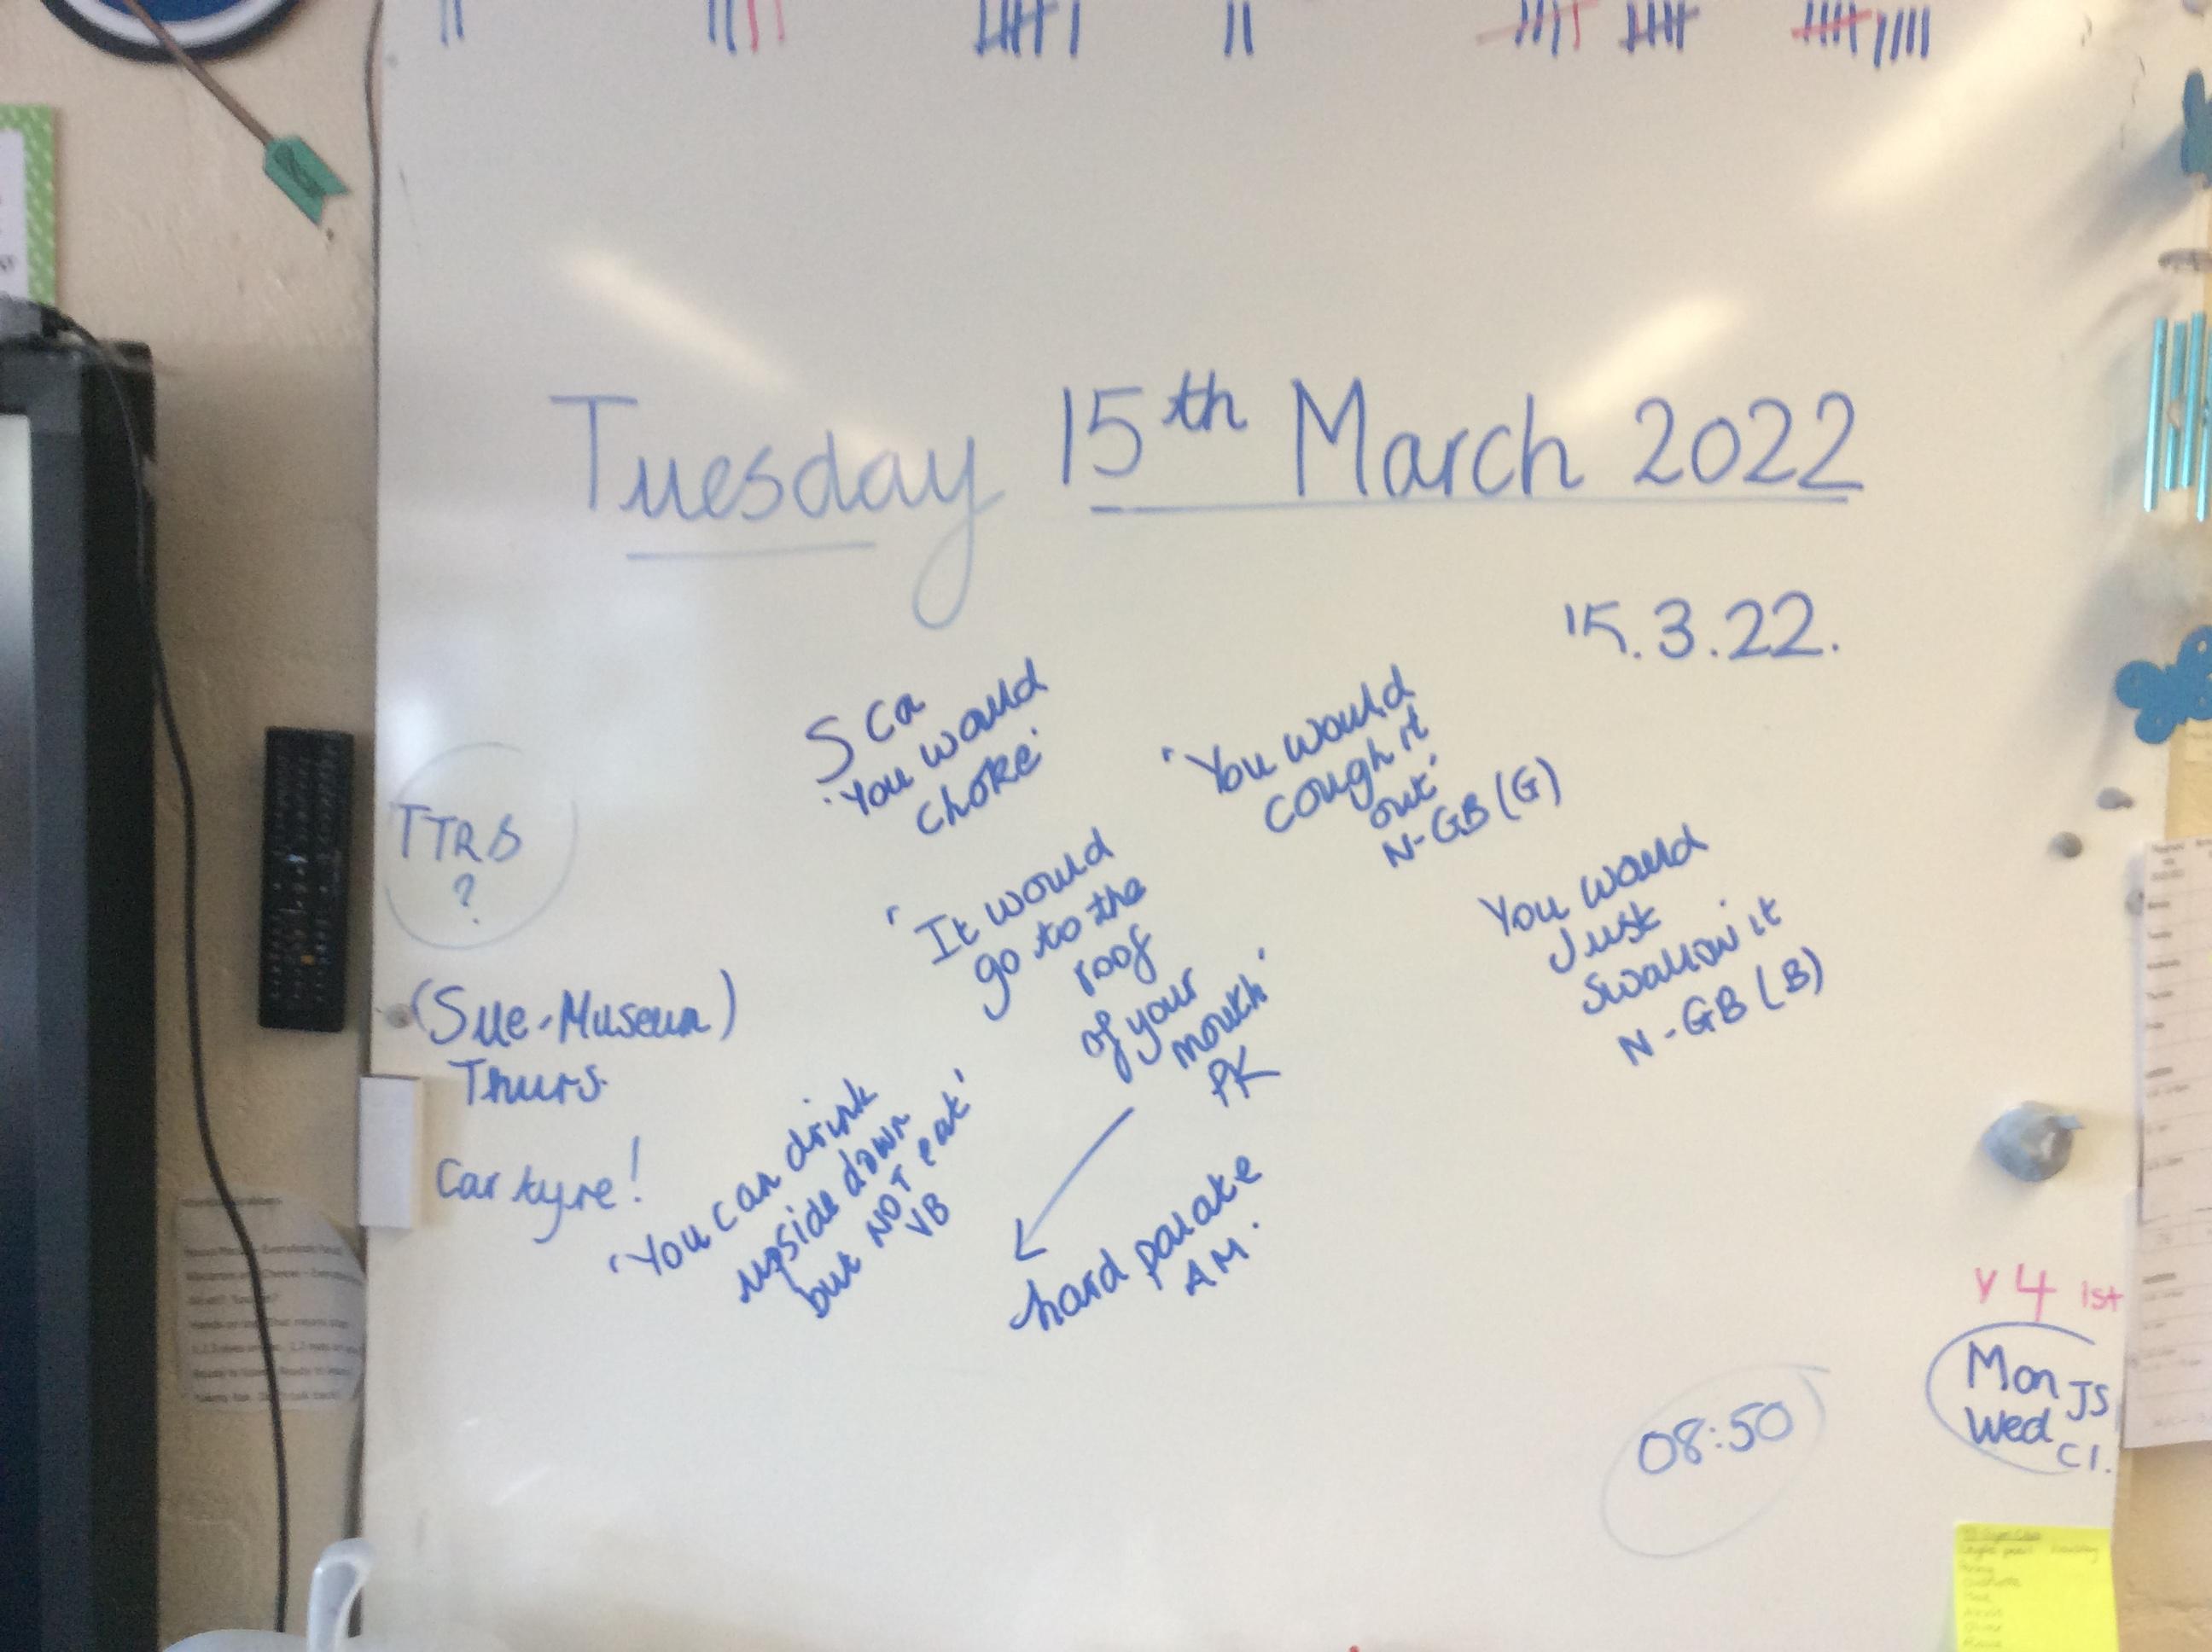 Tuesday 15th March 2022
15.3.22.
Sca
'You would
choke'
'You would
cough it
out'
N-GB (G)
TTRS
?
'It would
go to the
roof
of your
mouth'
PK
You would
Just
swallow it
N-GB (B)
(Sue-Museum)
Thurs.
Car tyre!
'You can drink
upside down
but NOT eat'
VB
hard palate
AM.
Y4 1st
Mon JS
Wed CI.
08:50